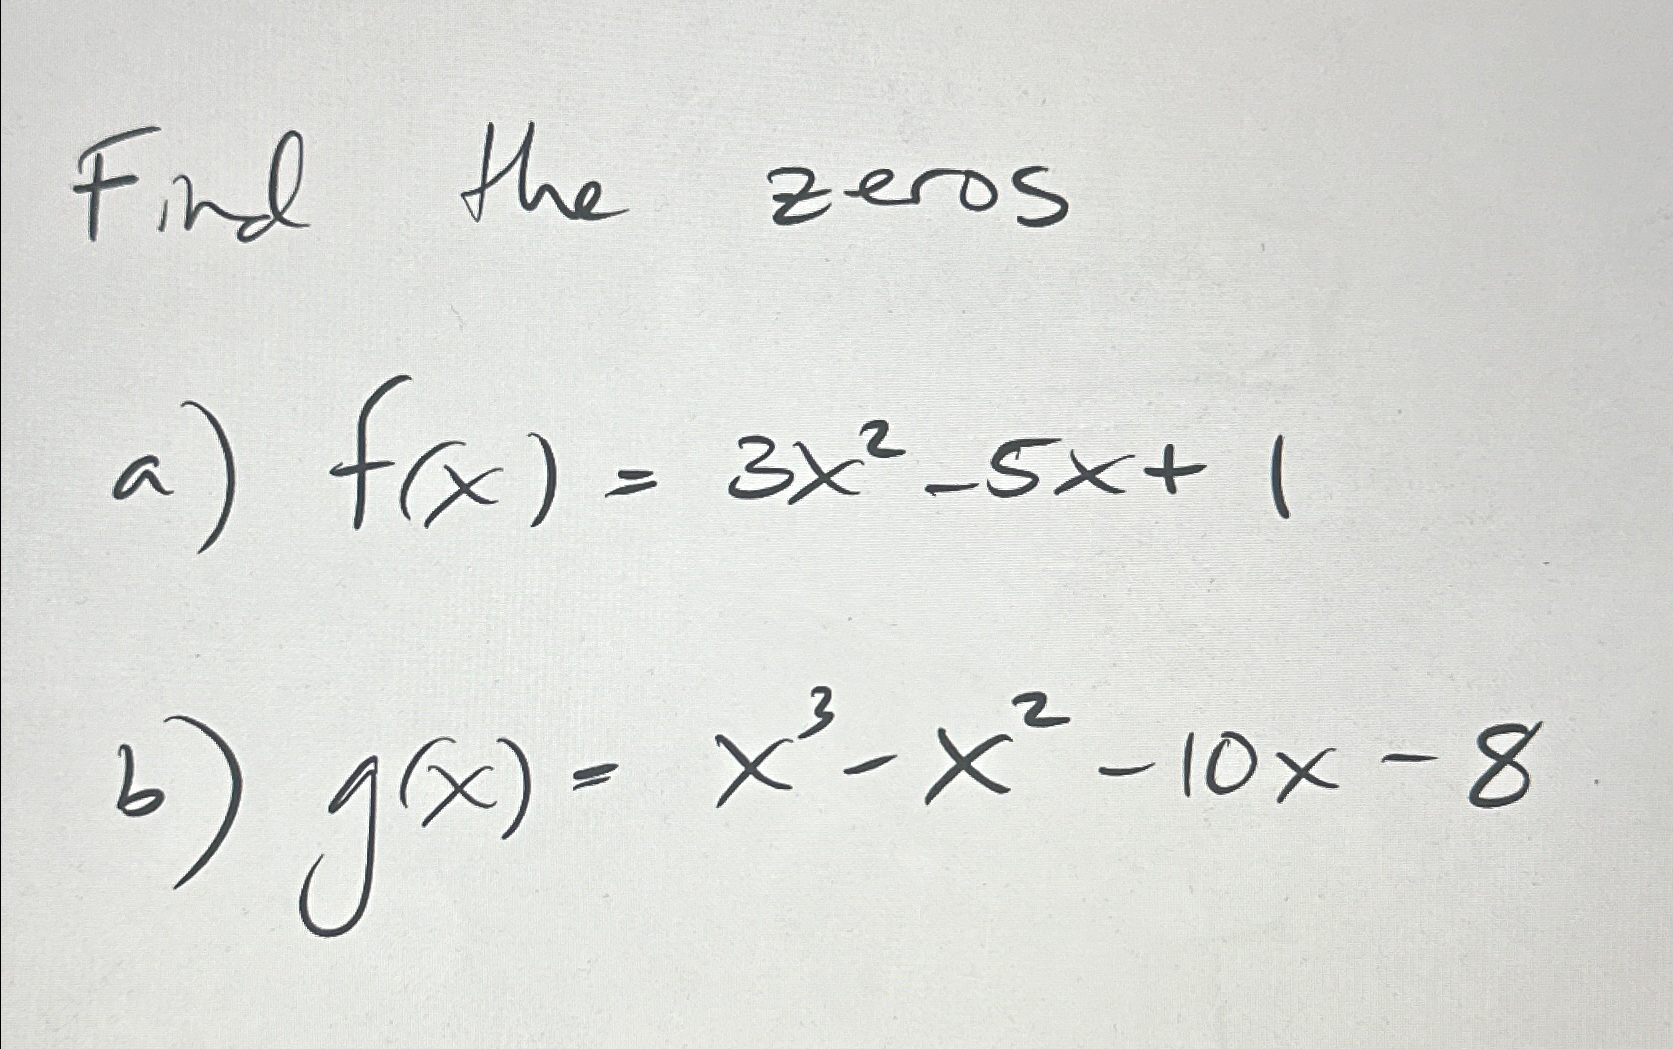 Find the zeros
a) f(x) = 3x² - 5x + 1
b) g(x) = x³ - x² - 10x - 8